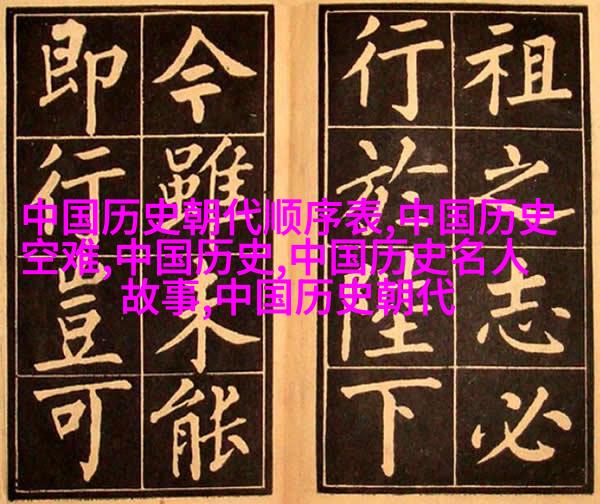 祖之志必
行於陛下
今雖未能
即行豈可
中国历史朝代顺序表,中国历史
空难,中国历史,中国历史名人
故事,中国历史朝代